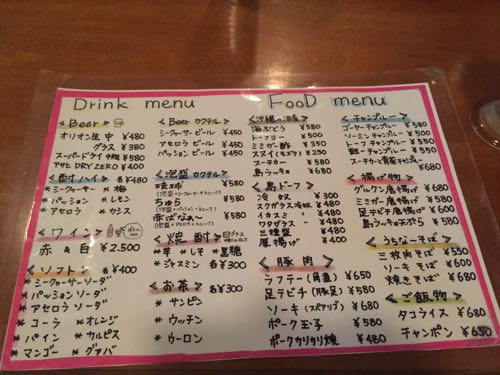 Drink menu
< Beer >
オリオン生 中 ¥480
グラス ¥380
スーパードライ 中瓶 ¥580
アサヒ DRY ZERO ¥400
< 酎ハイ > 各¥450
* シークヮーサー * 梅
* パッション * レモン
* アセロラ * カシス
< ワイン >
赤 & 白 ¥2.500
< ソフトドリンク > 各¥400
* シークヮーサーソーダ
* パッションソーダ
* アセロラ ソーダ
* コーラ * オレンジ
* パイン * カルピス
* マンゴー * グァバ
< Beer カクテル >
シークヮーサービール ¥450
アセロラ ビール ¥450
パッション ビール ¥450
< 泡盛 カクテル >
琉球 ¥580
ちゅら ¥580
¥580
< 焼酎 >
* 芋 * しそ * 黒糖
* ジャスミン 各¥300
< お茶 > 各¥300
* サンピン
* ウッチン
* ウーロン
FooD menu
海ぶどう ¥580
トーフヨー ¥380
ミミガー酢 ¥350
スヌイ(モズク) ¥250
スーチカー ¥680
島ラッキョ ¥580
< 島ドーフ >
冷奴 ¥300
スクガラス冷奴 ¥400
イカスミ 〃 ¥480
ワタガラス 〃 ¥480
三種盛 ¥580
厚揚げ ¥480
< 豚肉 >
ラフテー(角煮) ¥650
足テビチ(豚足) ¥580
ソーキ(スペアリブ) ¥680
ポーク玉子 ¥580
ポークカリカリ焼 ¥480
< チャンプルー >
ゴーヤーチャンプルー ¥580
ソーミンチャンプルー ¥580
トーフチャンプルー ¥580
フーチャンプルー ¥580
¥680
< 揚げ物 >
グルクン唐揚げ ¥680
ミミガー唐揚げ ¥580
足テビチ唐揚げ ¥580
島ラッキョ天ぷら ¥580
< うちなーそば >
三枚肉そば ¥580
ソーキそば ¥680
焼きそば ¥680
< ご飯物 >
タコライス ¥680
チャンポン ¥650